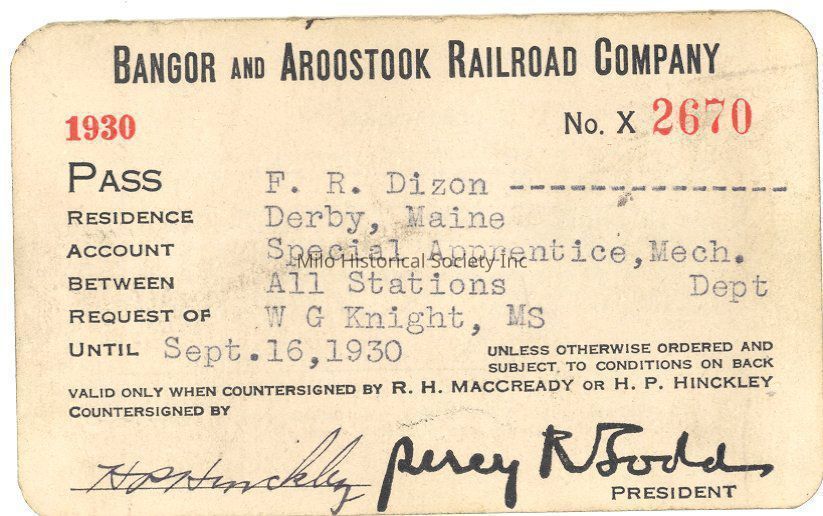 BANGOR AND AROOSTOOK RAILROAD COMPANY
1930 No. X 2670
PASS F. R. Dizon ----------------
RESIDENCE Derby, Maine
ACCOUNT Special Apprentice, Mech.
Milo Historical Society Inc
BETWEEN All Stations Dept
REQUEST OF W G Knight, MS
UNTIL Sept.16,1930 UNLESS OTHERWISE ORDERED AND
SUBJECT TO CONDITIONS ON BACK
VALID ONLY WHEN COUNTERSIGNED BY R. H. MACCREADY OR H. P. HINCKLEY
COUNTERSIGNED BY
H P Hinckley Percy R Todd
PRESIDENT